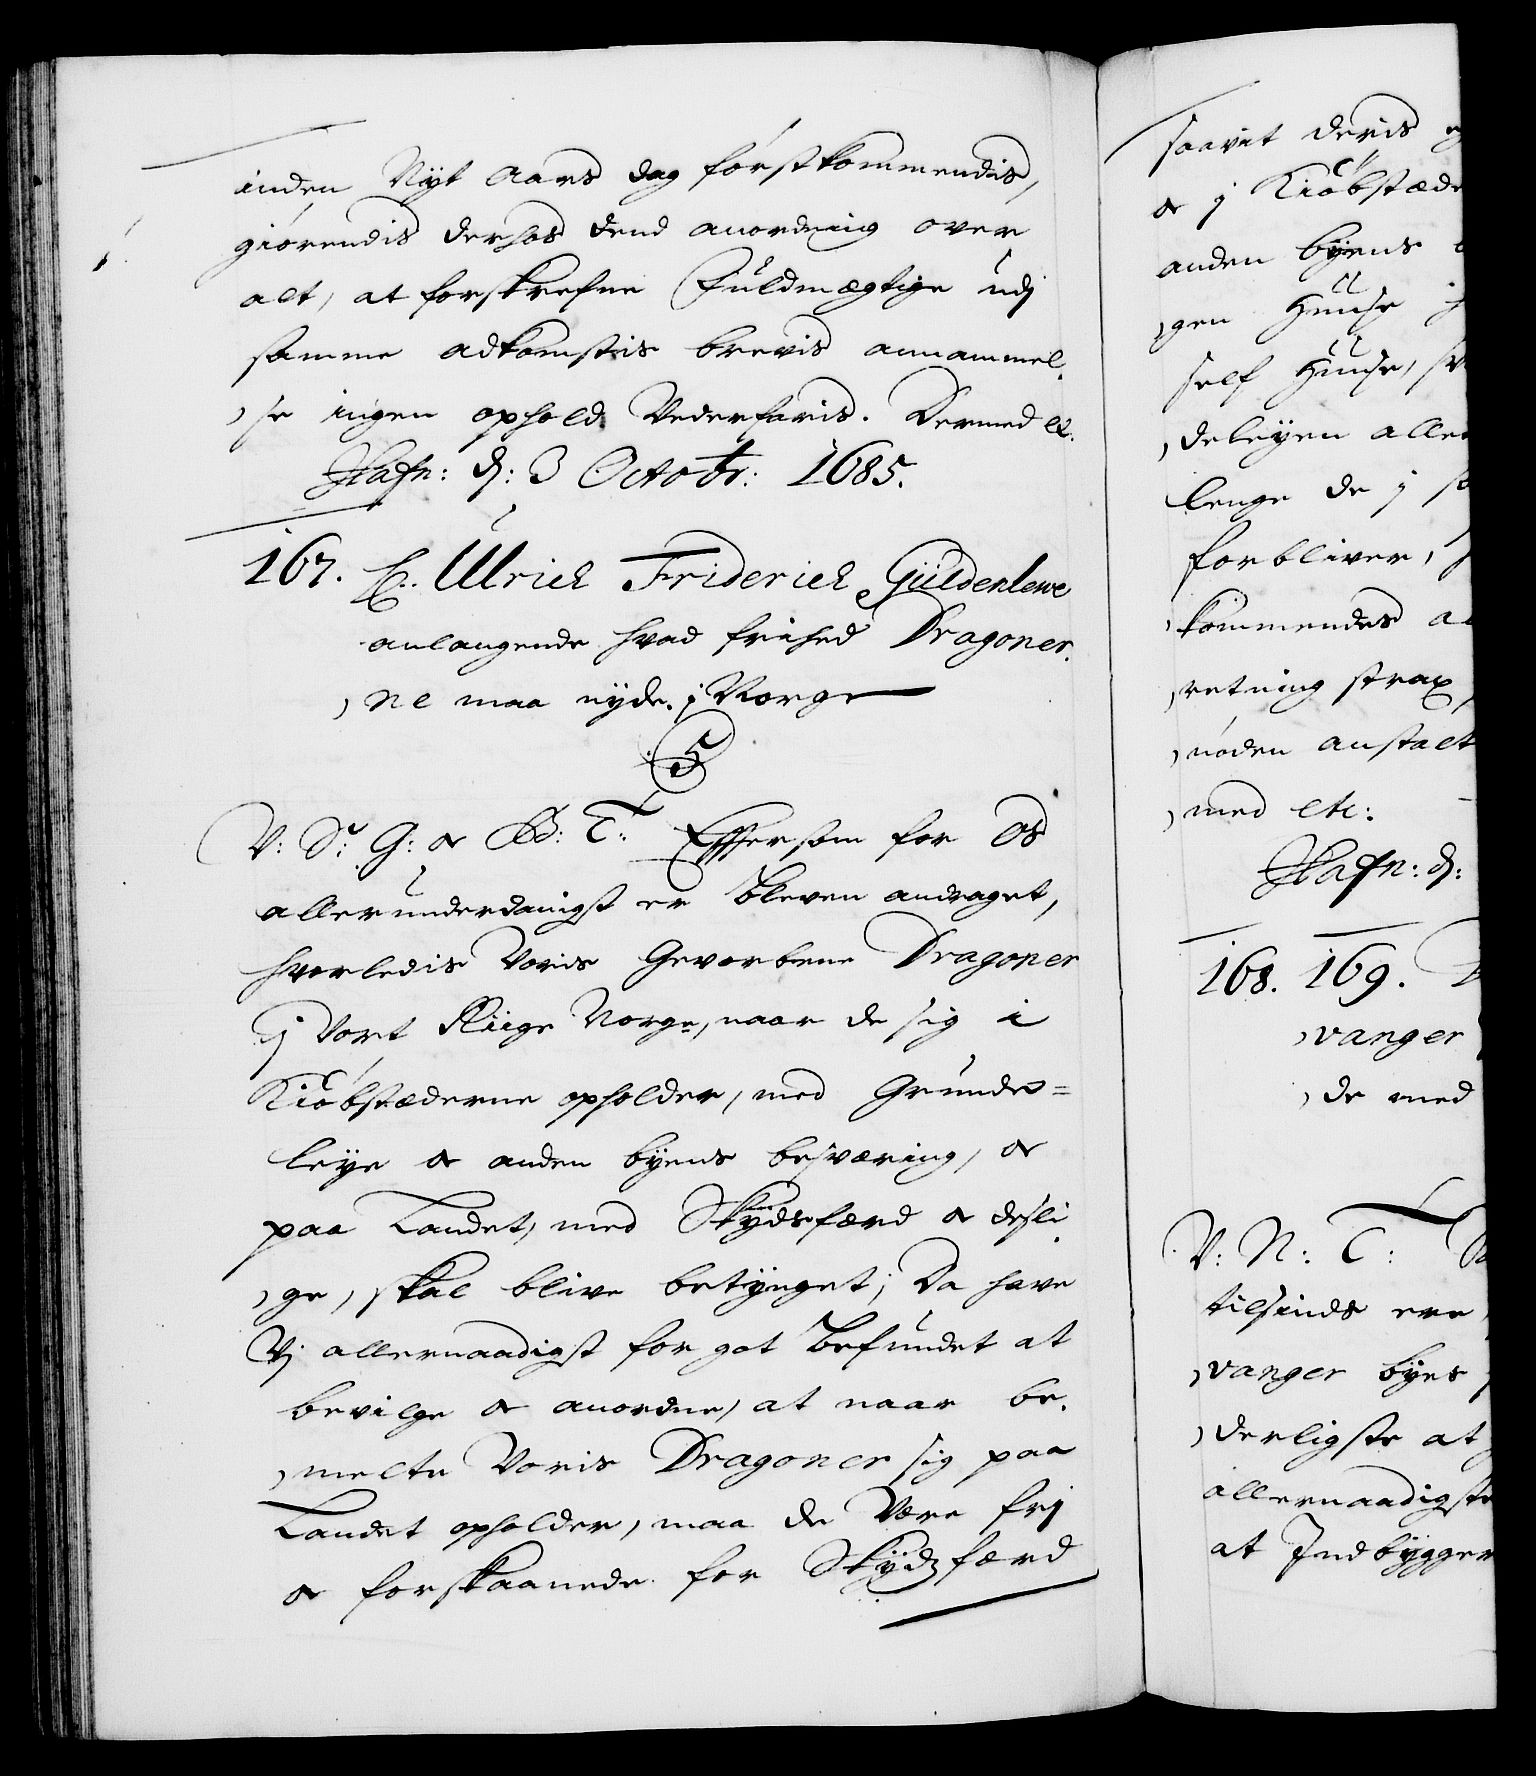 inden Nyt Aars dag förstkommendis,
giörendis derhos dend anordning over
alt, at forskrefne Fuldmægtige udj
samme adkomstis brevis annammel,
,se ingen ophold Vederfaris. Dermed etc.
Hafn: d: 3 Octobr: 1685.
167. C. Ulrich Friderich Güldenlewe
anlangende hvad frihed Dragoner,
,ne maa nyde j Norge
C5
V: S: G: og B: T: Eftersom for Os
allerunderdanigst er bleven andraget,
hvorledis Voris Gevorbene Dragoner
j Vort Riige Norge, naar de sig i
Kiöbstæderne opholder, med Grunde=
leye og anden byens besværing, og
paa Landet, med Skydsfærd og desli,
,ge, skal blive betynget; Da have
Vj allernaadigst for got befundet at
bevilge og anordne, at naar be,
,melte Voris Dragoner sig paa
Landet opholder, maa de Være frj
og forskaanede for Skydsfærd
saavit deris
og j Kiöbstæde
anden byens
,gen Huuse
self Huuse,
,deleyen alle
lenge de j
forbliver,
kommendes
,retning strax,
,noden anstalt
,med etc:
Hafn: d:
168. 169.
,vanger
,de med
V: N: T:
tilsinds ere
,vanger byes
,derligste at
allernaadigste
at Indbygger